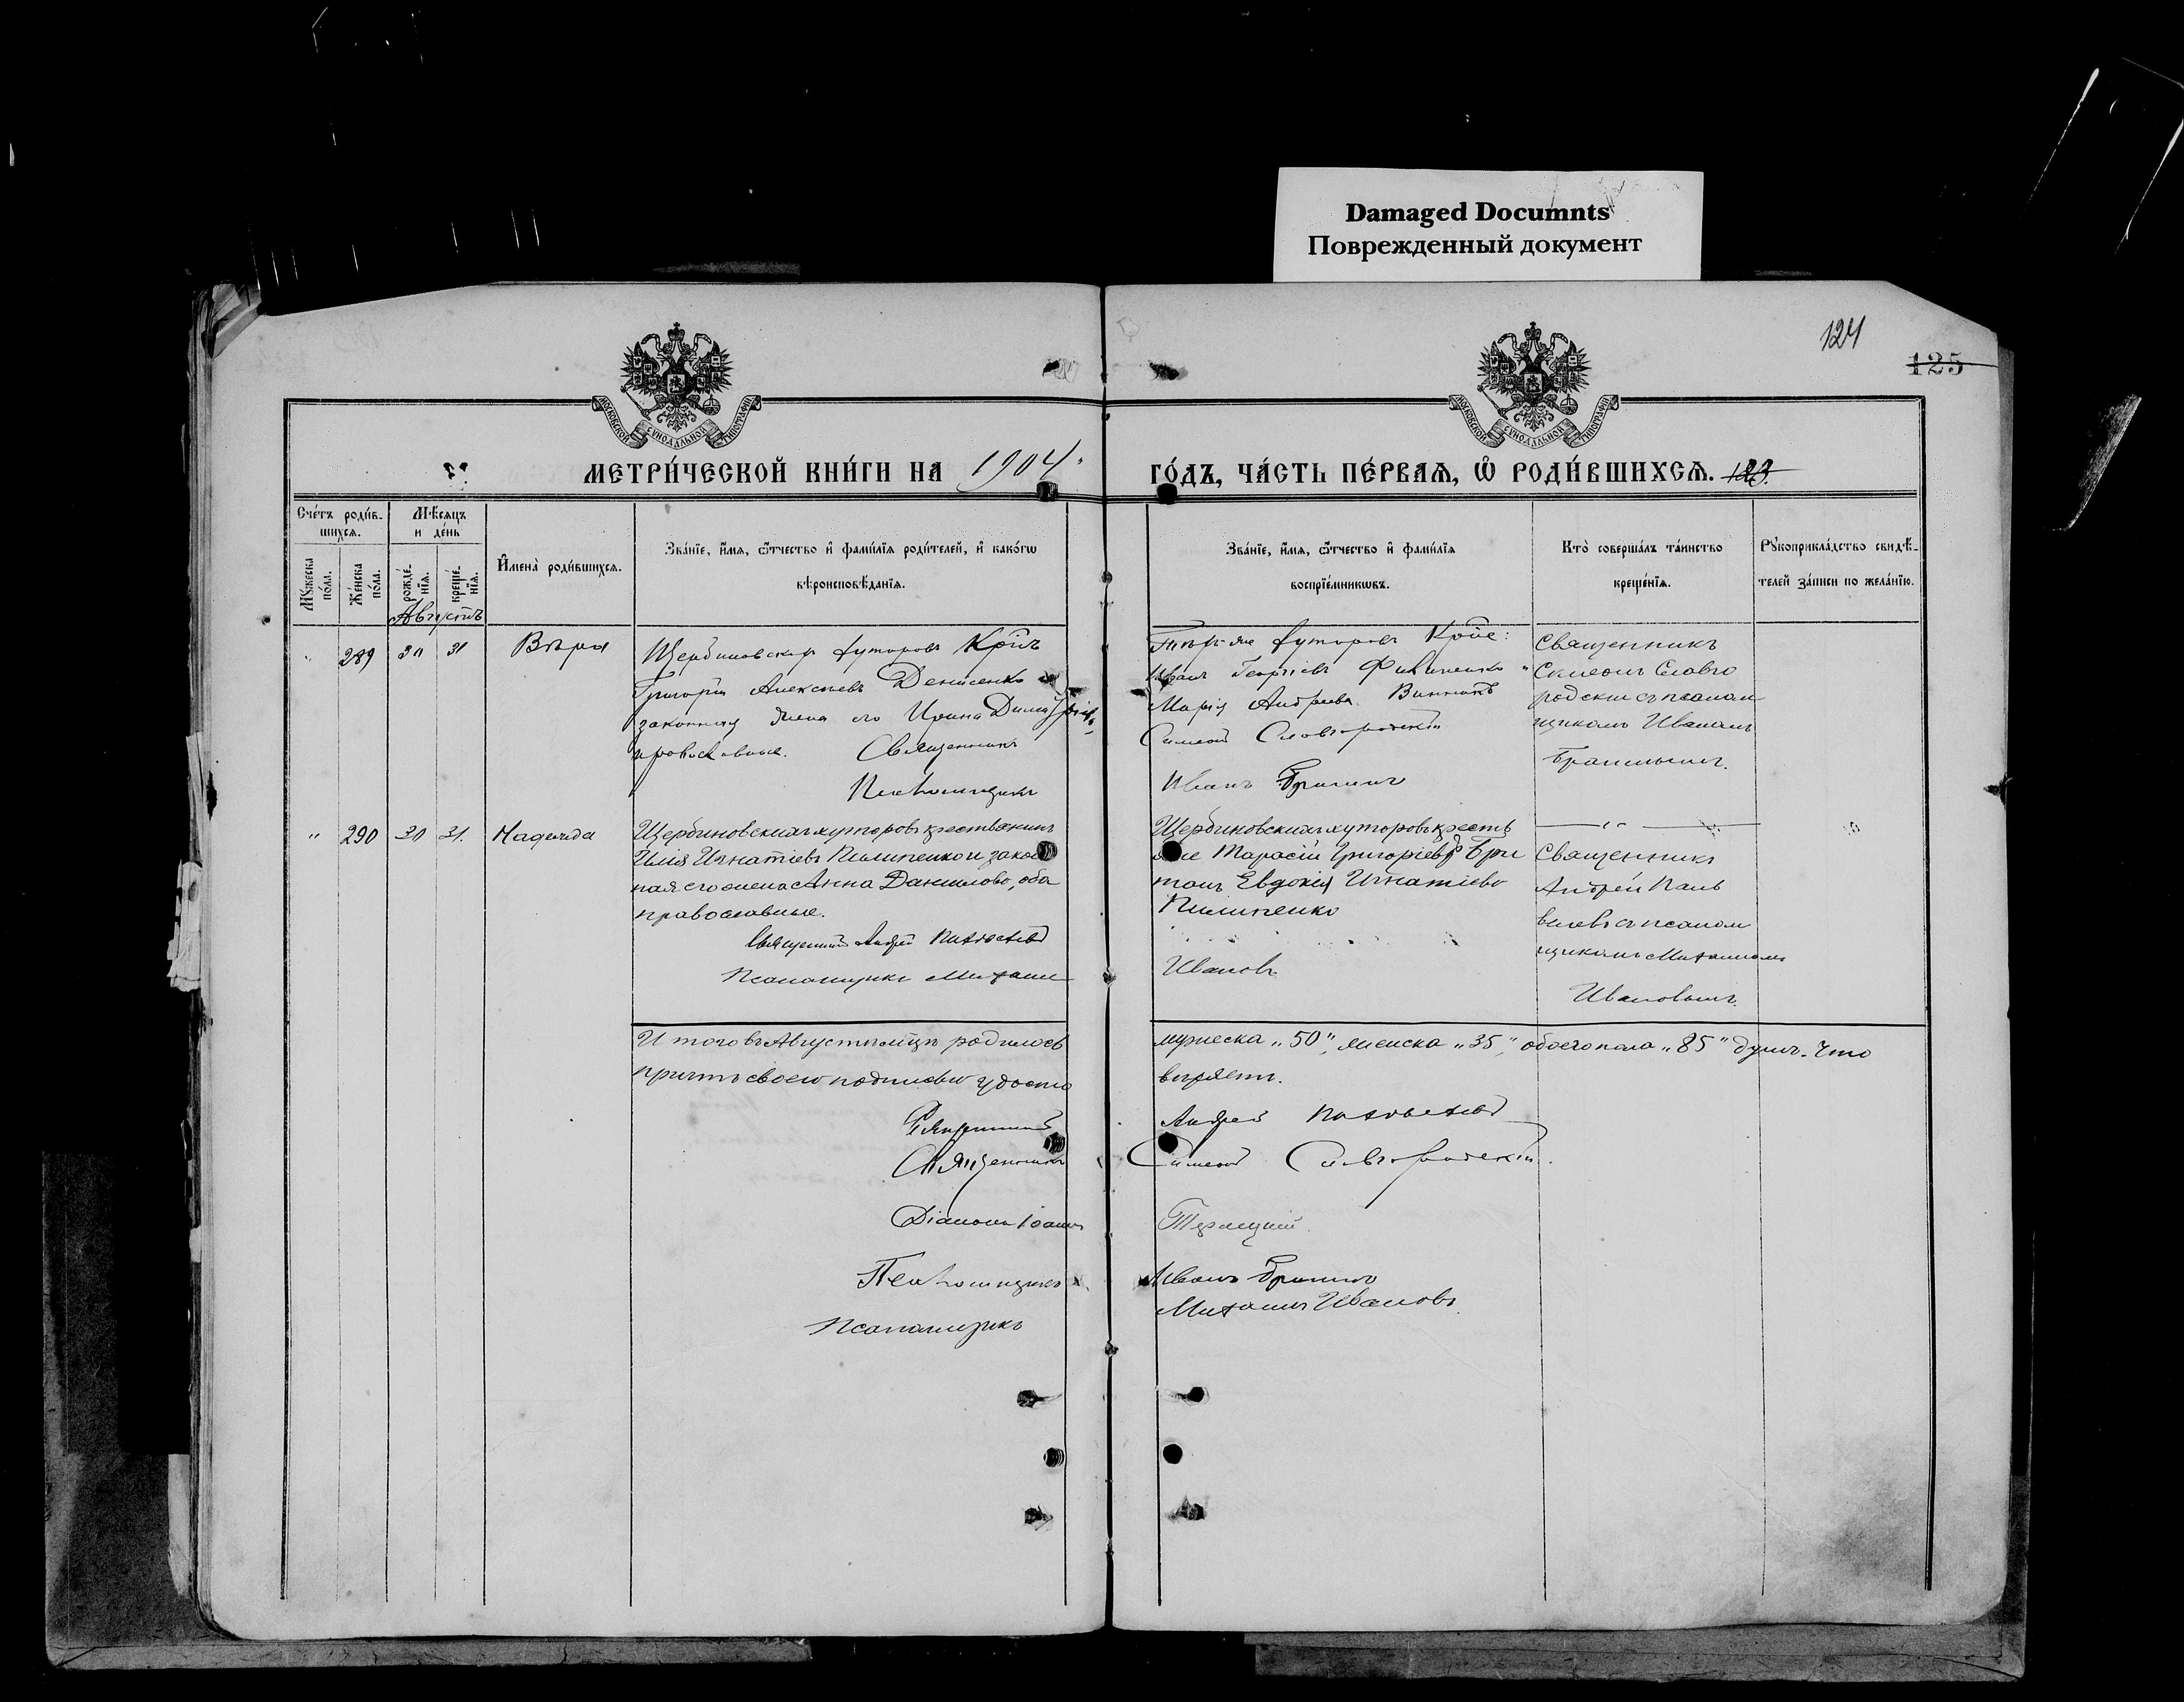 Damaged Documnts
Поврежденный документ
124
125
МОСКОВСКОЙ СѴНОДАЛЬНОЙ ТИПОГРАФІИ
МОСКОВСКОЙ СѴНОДАЛЬНОЙ ТИПОГРАФІИ
МЕТРИ́ЧЕСКОЙ КНИ́ГИ НА 1904
ГО́ДЪ, ЧА́СТЬ ПЕ́РВАѦ, Ѿ РОДИ́ВШИХСѦ. 123
Сче́тъ роди́в-
шихсѧ.
Мѣсѧцъ
и де́нь
Мꙋ́жеска по́ла.
Же́нска по́ла.
рожде́-нїѧ.
креще́-нїѧ.
И҆мена̀ роди́вшихсѧ.
Зва́нїе, и҆́мѧ, ѻ҆́тчество и҆ фами́лїѧ роди́телей, и҆ како́гѡ
вѣроисповѣ́данїѧ.
Зва́нїе, и҆́мѧ, ѻ҆́тчество и҆ фами́лїѧ
воспрїе́мникѡвъ.
Кто̀ соверша́лъ та́инство
креще́нїѧ.
Рꙋкоприкла́дство свидѣ́-
телей за́писи по жела́нїю.
Августъ
" 289 30 31 Вѣра
Щербиновскихъ хуторовъ Кр̃инъ
Григорій Алексѣевъ Денисенко и
законная жена его Ирина Димитріева
православные. Священникъ
Псаломщикъ
хуторовъ Кр̃не:
Иванъ Георгіевъ Филипенко и
Марія Андреева Винникъ
Симеонъ Словгородскій
Иванъ
Священникъ
Симеонъ Словго
родскій съ псалом
щикомъ Иваномъ
" 290 30 31. Надежда
Щербиновскихъ хуторовъ крестьянинъ
Илія Игнатіевъ Пилипенко и закон
ная его жена Анна Данилова, оба
православные.
Священникъ Андрей Пантелеевъ
Псаломщикъ Михаилъ
Щербиновскихъ хуторовъ кресть
яне Тарасій Григорьевъ
Евдокія Игнатіева
Пилипенко
Ивановъ
Священникъ
Андрей
съ псалом
щикомъ Михаиломъ
Ивановымъ.
Итого въ Августѣ мѣсяцѣ родилось
мужеска „50", женска „35", обоего пола „85" душъ. Что
причтъ своею подписью удосто
вѣряетъ.
Священникъ Андрей
Священникъ Симеонъ Словгородскій.
Діаконъ Іоаннъ
Псаломщикъ Иванъ
Псаломщикъ Михаилъ Ивановъ.